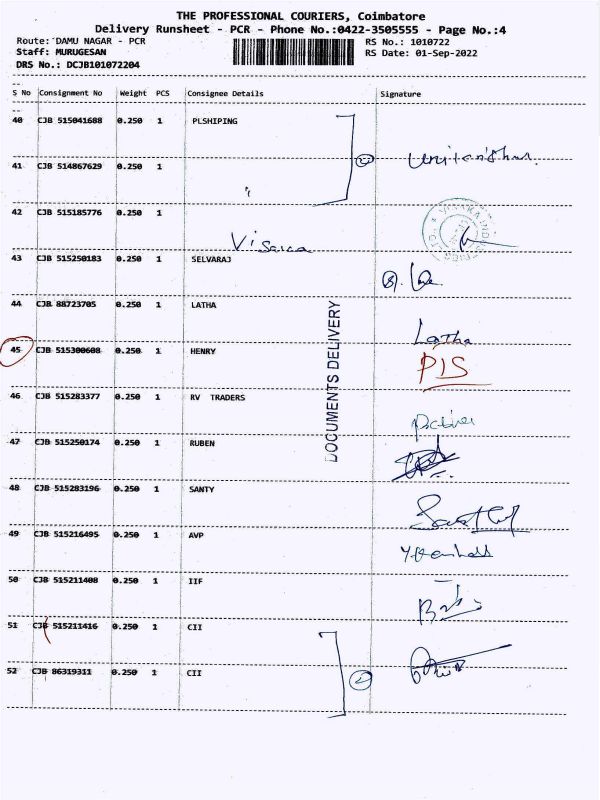 THE PROFESSIONAL COURIERS, Coimbatore
Delivery Runsheet - PCR - Phone No.:0422-3505555 - Page No.:4
Route: DAMU NAGAR - PCR
Staff: MURUGESAN
DRS No.: DCJB101072204
RS No.: 1010722
RS Date: 01-Sep-2022
S No Consignment No Weight PCS Consignee Details Signature
40 CJB 515041688 0.250 1 PLSHIPING
41 CJB 514867629 0.250 1
42 CJB 515185776 0.250 1
Visaka
43 CJB 515250183 0.250 1 SELVARAJ
44 CJB 88723705 0.250 1 LATHA
Latha
45 CJB 515300608 0.250 1 HENRY
PIS
46 CJB 515283377 0.250 1 RV TRADERS
47 CJB 515250174 0.250 1 RUBEN
48 CJB 515283196 0.250 1 SANTY
49 CJB 515216495 0.250 1 AVP
50 CJB 515211408 0.250 1 IIF
51 CJB 515211416 0.250 1 CII
52 CJB 86319311 0.250 1 CII
DOCUMENTS DELIVERY